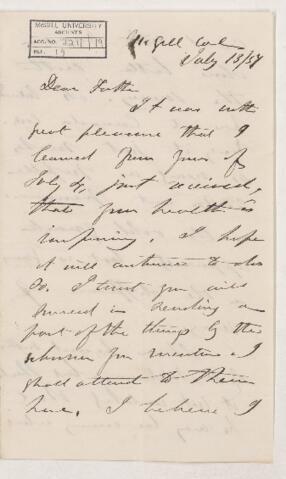 McGILL UNIVERSITY
ARCHIVES
ACC. NO. 927 / 19
REF. 19
McGill Col
July 13/57
Dear Father
It was with
great pleasure that I
learned from yours of
July 4, just received,
that your health is
improving. I hope
it will continue to do
so. I trust you will
succeed in sending a
part of the things by the
schooner you mention & I
shall attend to them
here. I believe I